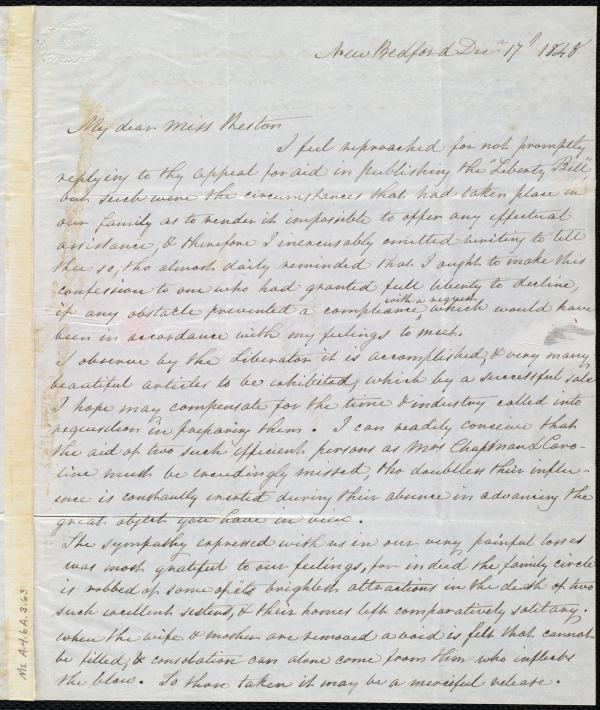 New Bedford Dec. 17th 1848
My dear Miss Weston
I feel reproached for not promptly
replying to thy appeal for aid in publishing the "Liberty Bell"
but such were the circumstances that had taken place in
our family as to render it impossible to offer any effectual
assistance, & therefore I inexcusably omitted writing to tell
thee so, tho almost daily reminded that I ought to make this
confession to one who had granted full liberty to decline,
if any obstacle prevented a compliance with a request which would have
been in accordance with my feelings to meet.
I observe by the Liberator it is accomplished, & very many
beautiful articles to be exhibited, which by a successful sale
I hope may compensate for the time & industry called into
requisition in preparing them. I can readily conceive that
the aid of two such efficient persons as Mrs Chapman & Caro-
line must be exceedingly missed, tho doubtless their influ-
ence is constantly exerted during their absence in advancing the
great object you have in view.
The sympathy expressed with us in our very painful losses
was most grateful to our feelings, for indeed the family circle
is robbed of some of its brightest attractions in the death of two
such excellent sisters, & their homes left comparatively solitary.
when the wife & mother are removed a void is felt that cannot
be filled, & consolation can alone come from Him who inflicts
the blow. To those taken it may be a merciful release.
Ms. A.4.6A.3.63